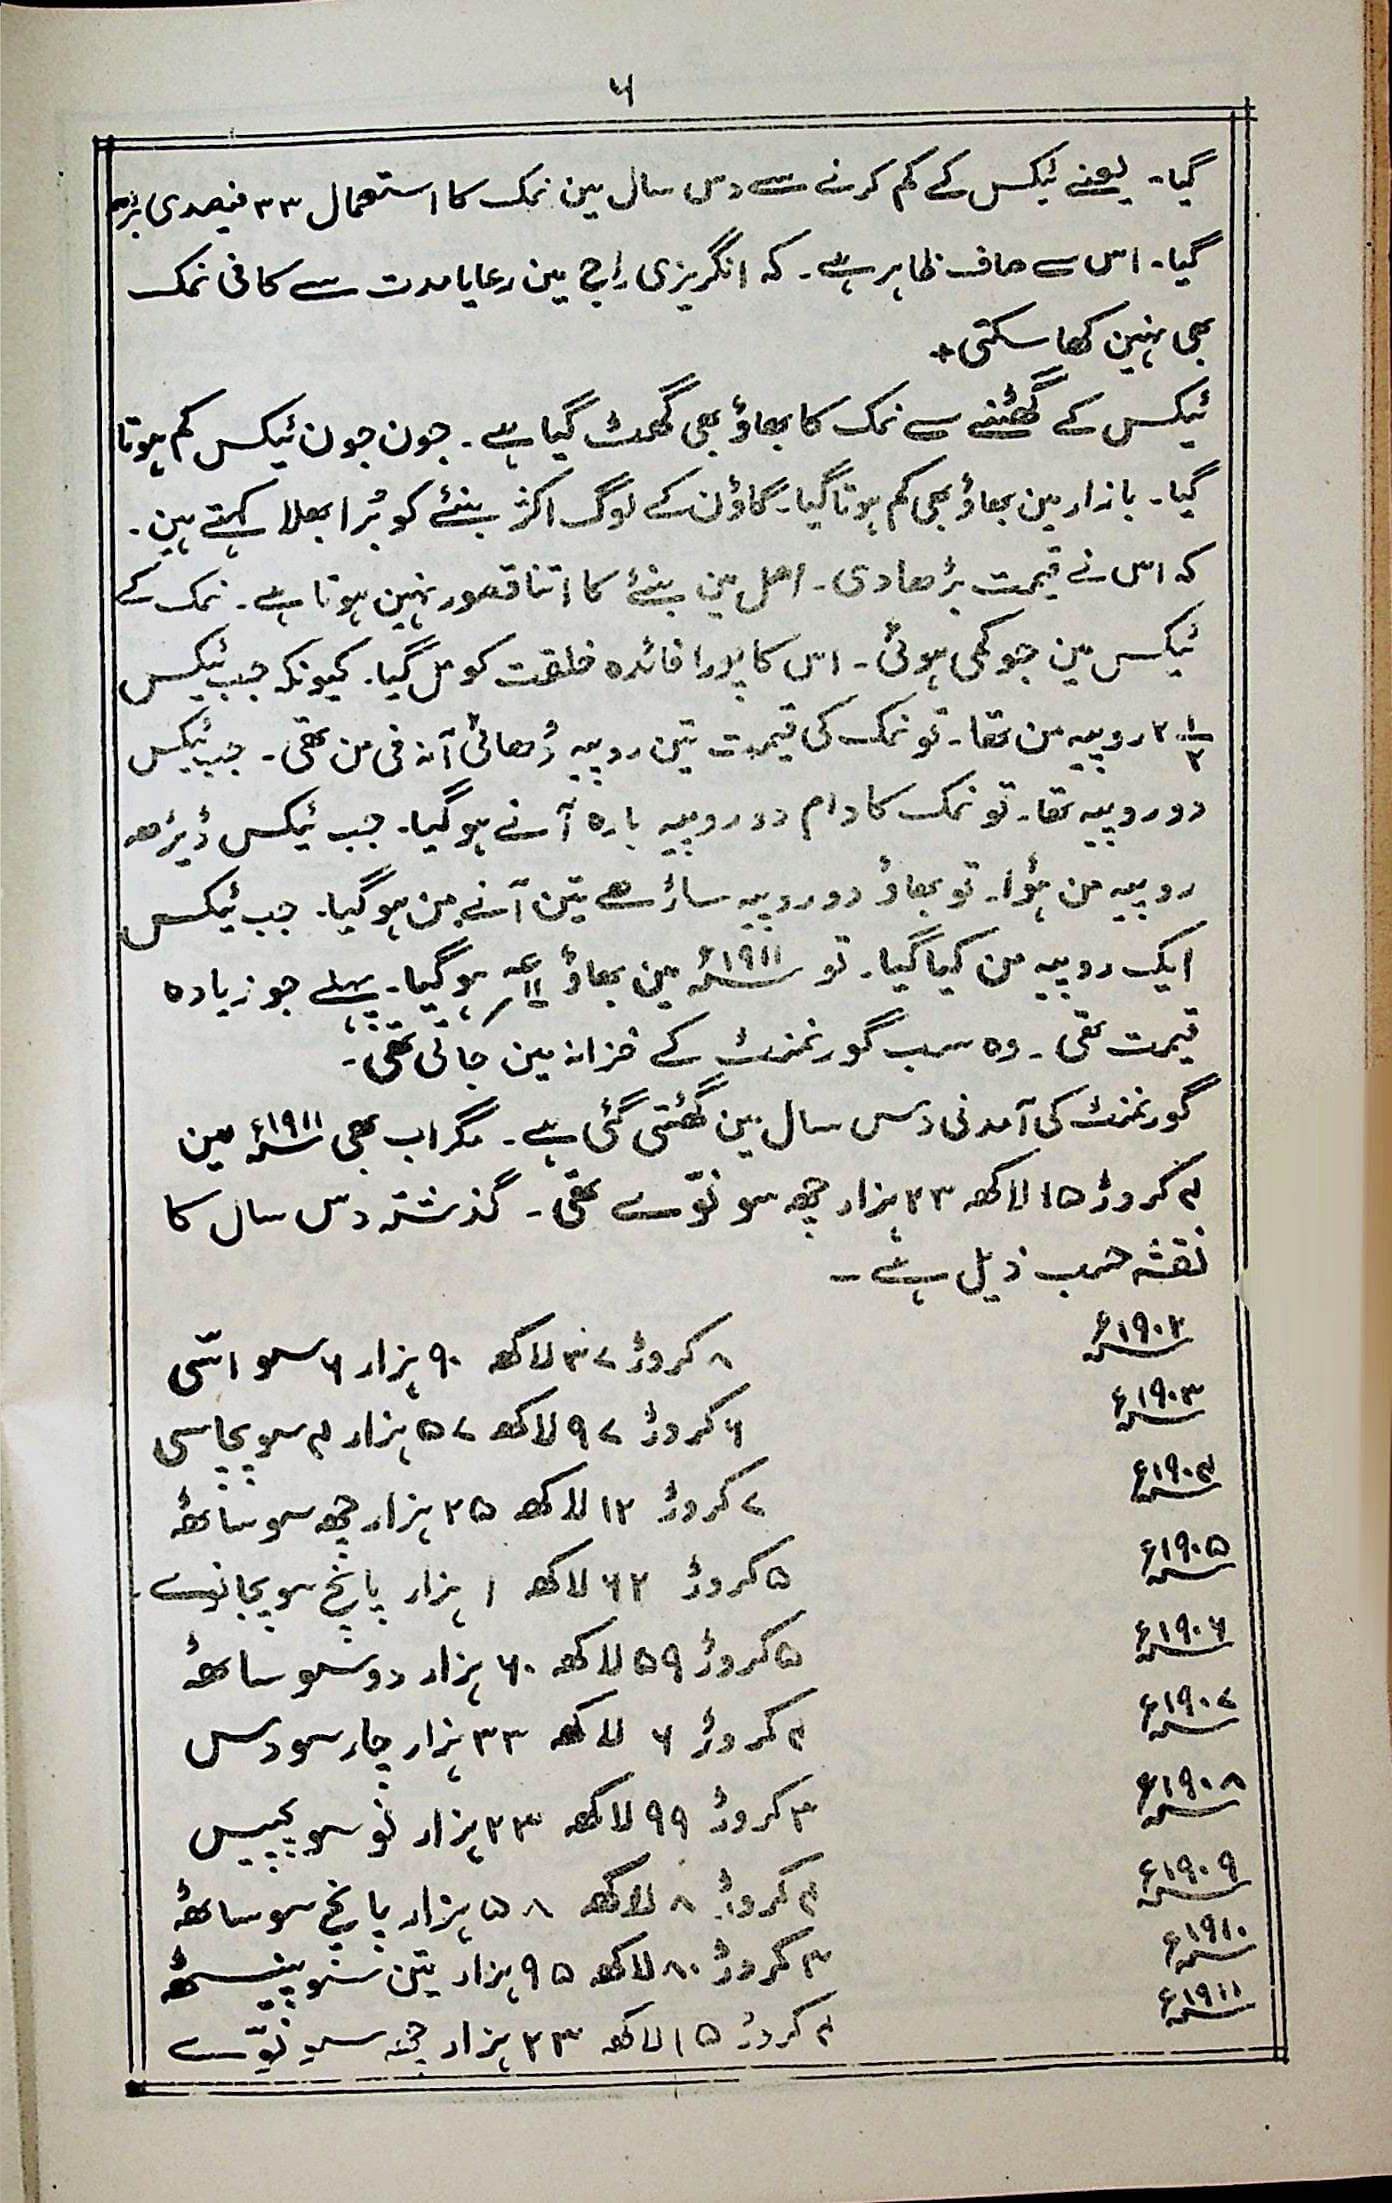 ۶
گیا۔ یعنے ٹیکس کے کم کرنے سے دس سال مین نمک کا استعمال ۳۳ فیصدی بڑھ
گیا۔ اس سے صاف ظاہر ہے۔ کہ انگریزی راج مین رعایا مدت سے کافی نمک
بھی نہین کھا سکتی +
ٹیکس کے گھٹنے سے نمک کا بھاؤ بھی گھٹ گیا ہے۔ جون جون ٹیکس کم ہوتا
گیا۔ بازار مین بھاؤ بھی کم ہوتا گیا۔ گاؤن کے لوگ اکثر بنئے کو بُرا بھلا کہتے ہین۔
کہ اس نے قیمت بڑھا دی۔ اصل مین بنئے کا اتنا قصور نہین ہوتا ہے۔ نمک کے
ٹیکس مین جو کمی ہوئی۔ اس کا پورا فائدہ خلقت کو مل گیا۔ کیونکہ جب ٹیکس
۲ ۱/۲ روپیہ من تھا۔ تو نمک کی قیمت تین روپیہ ڈھائی آنہ فی من تھی۔ جب ٹیکس
دو روپیہ تھا۔ تو نمک کا دام دو روپیہ بارہ آنے ہو گیا۔ جب ٹیکس ڈیڑھ
روپیہ من ہؤا۔ تو بھاؤ دو روپیہ ساڑھے تین آنے من ہو گیا۔ جب ٹیکس
ایک روپیہ من کیا گیا۔ تو ۱۹۱۱ء مین بھاؤ ہو گیا۔ پہلے جو زیادہ
قیمت تھی۔ وہ سب گورنمنٹ کے خزانہ مین جاتی تھی۔
گورنمنٹ کی آمدنی دس سال مین گھٹتی گئی ہے۔ مگر اب بھی ۱۹۱۱ء مین
۴ کروڑ ۱۵ لاکھ ۲۳ ہزار چھ سو نوّے تھی۔ گذشتہ دس سال کا
نقشہ حسب ذیل ہے۔
۱۹۰۲ء ۸ کروڑ ۳۷ لاکھ ۹۰ ہزار ۶ سو اسّی
۱۹۰۳ء ۶ کروڑ ۹۷ لاکھ ۵۷ ہزار ۴ سو پچاسی
۱۹۰۴ء ۷ کروڑ ۱۲ لاکھ ۲۵ ہزار چھ سو ساٹھ
۱۹۰۵ء ۵ کروڑ ۶۲ لاکھ ۱ ہزار پانچ سو پچانوے
۱۹۰۶ء ۵ کروڑ ۵۹ لاکھ ۶۰ ہزار دو سو ساٹھ
۱۹۰۷ء ۴ کروڑ ۶ لاکھ ۳۳ ہزار چار سو دس
۱۹۰۸ء ۳ کروڑ ۹۹ لاکھ ۲۳ ہزار نو سو پچیس
۱۹۰۹ء ۴ کروڑ ۸ لاکھ ۵۸ ہزار پانچ سو ساٹھ
۱۹۱۰ء ۳ کروڑ ۸۰ لاکھ ۹۵ ہزار تین سو پینسٹھ
۱۹۱۱ء ۴ کروڑ ۱۵ لاکھ ۲۳ ہزار چھ سو نوّے